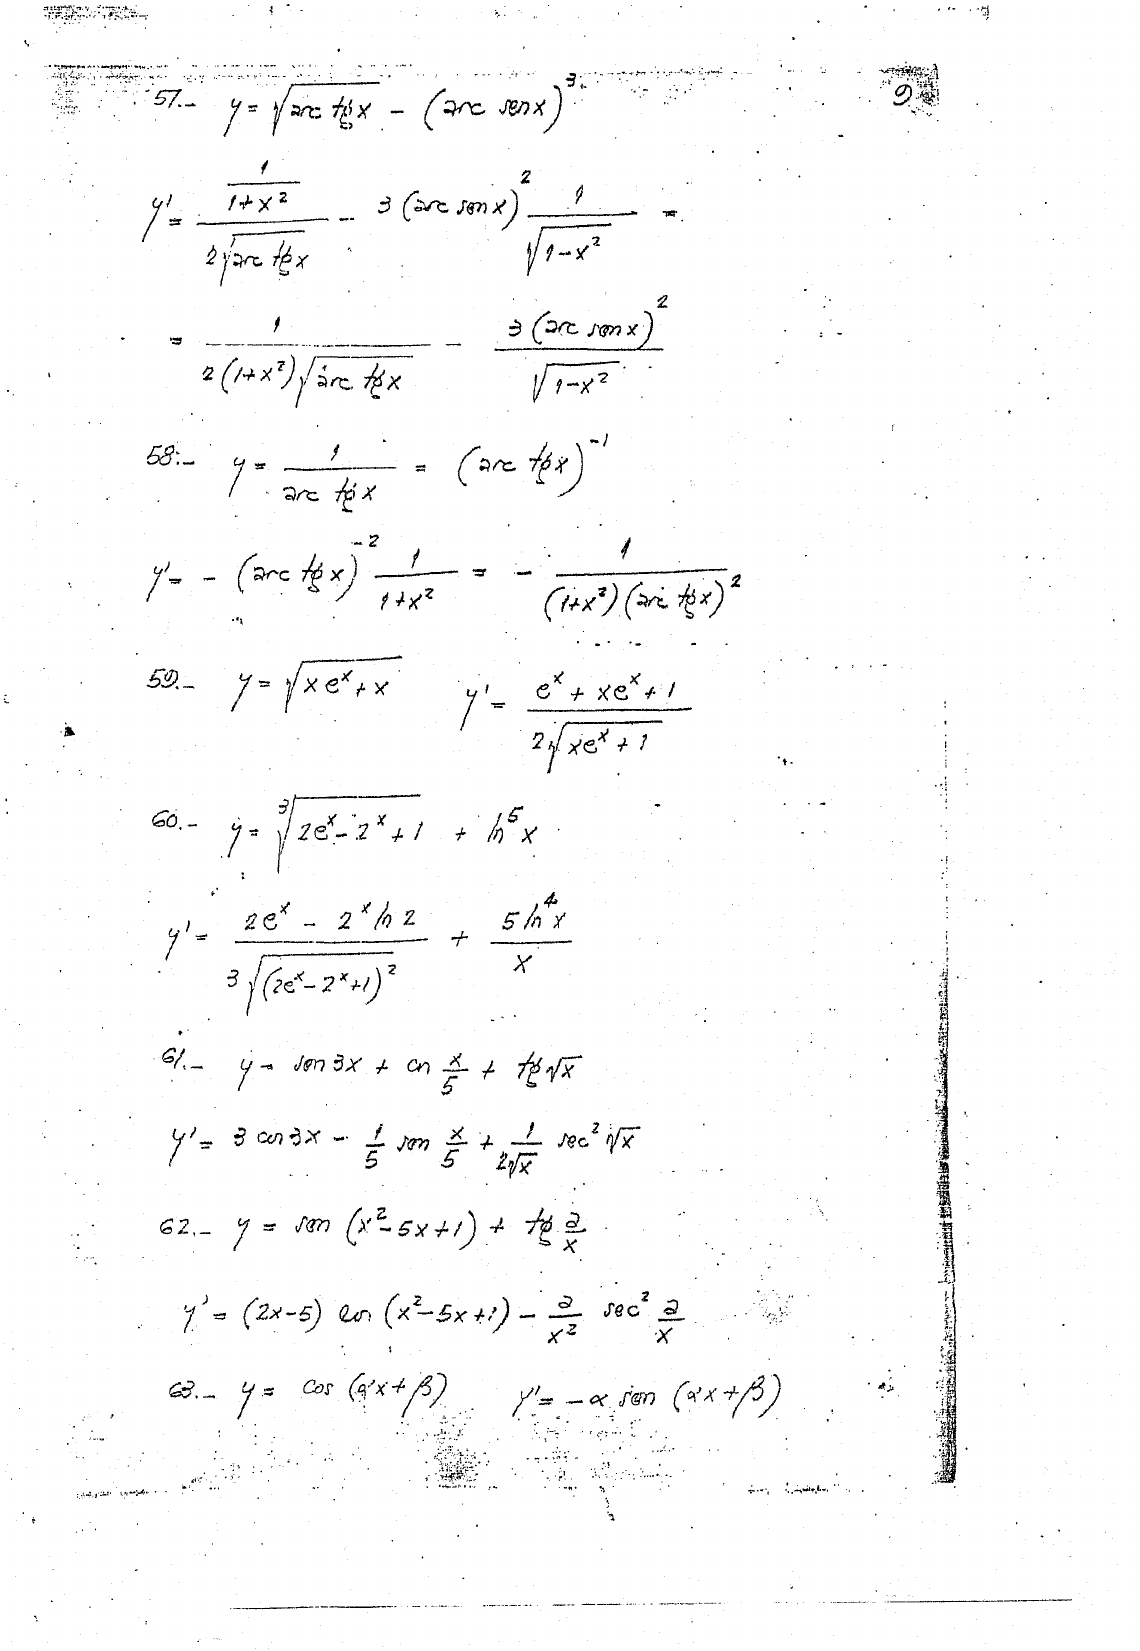 9
57.- y = √(arc tg x) - (arc sen x)³
y' = (1/(1+x²))/(2√(arc tg x)) - 3 (arc sen x)² 1/√(1-x²) =
= 1/(2(1+x²)√(arc tg x)) - 3(arc sen x)²/√(1-x²)
58.- y = 1/(arc tg x) = (arc tg x)⁻¹
y' = - (arc tg x)⁻² 1/(1+x²) = - 1/((1+x²)(arc tg x)²)
59.- y = √(xeˣ+x) y' = (eˣ + xeˣ + 1)/(2√(xeˣ+1))
60.- y = ³√(2eˣ-2ˣ+1) + ln⁵x
y' = (2eˣ - 2ˣ ln 2)/(3√((2eˣ-2ˣ+1)²)) + 5 ln⁴x/x
61.- y = sen 3x + cos x/5 + tg √x
y' = 3 cos 3x - 1/5 sen x/5 + 1/(2√x) sec² √x
62.- y = sen (x²-5x+1) + tg a/x
y' = (2x-5) cos (x²-5x+1) - a/x² sec² a/x
63.- y = cos (αx+β) y' = -α sen (αx+β)